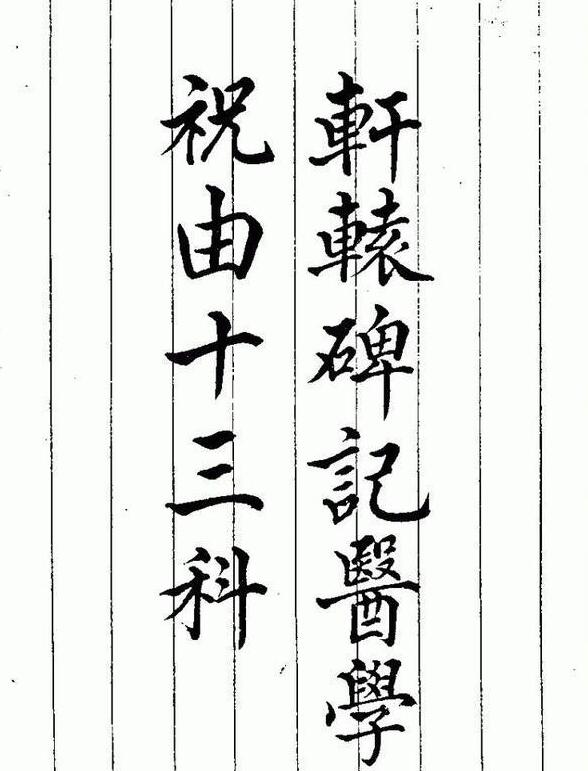 軒轅碑記醫學
祝由十三科